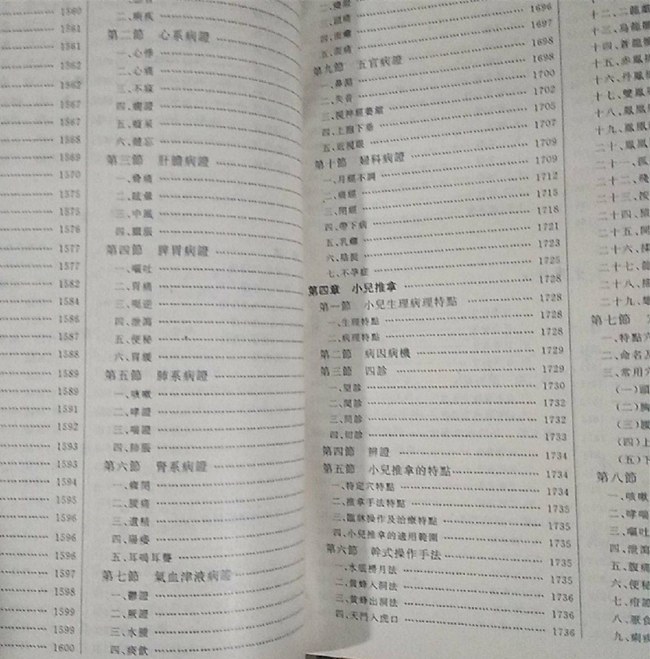 1560
1561
1561
1562
1562
1567
1567
1568
1569
1570
1575
1575
1576
1577
1582
1584
1586
1587
1588
1589
1589
1591
1592
1593
1593
1595
1596
1596
1596
1597
1598
1599
1599
1600
二、瘢疾
第二節 心系病證
一、心悸
二、心痛
三、不寐
四、癇證
五、癡呆
六、健忘
第三節 肝膽病證
一、脅痛
二、眩暈
三、中風
四、臌脹
第四節 脾胃病證
一、嘔吐
二、胃痛
三、呃逆
四、泄瀉
五、便秘
六、胃緩
第五節 肺系病證
一、咳嗽
二、哮證
三、喘證
四、肺脹
第六節 腎系病證
一、癃閉
二、腰痛
三、遺精
四、陽痿
五、耳鳴耳聾
第七節 氣血津液病證
一、鬱證
二、厥證
三、水腫
四、痰飲
1696
1697
1698
五、齒痛 1698
第九節 五官病證 1698
一、鼻淵 1700
二、失音 1702
四、上胞下垂 1707
五、近視眼 1709
第十節 婦科病證 1709
一、月經不調 1712
二、痛經 1715
三、閉經 1716
四、帶下病 1721
五、乳癰 1723
六、陰挺 1725
七、不孕症 1728
第四章 小兒推拿 1728
第一節 小兒生理病理特點 1728
一、生理特點 1728
二、病理特點 1729
第二節 病因病機 1729
第三節 四診 1730
一、望診 1732
二、聞診 1732
三、問診 1733
四、切診 1734
第四節 辨證 1734
第五節 小兒推拿的特點 1734
一、特定穴特點 1735
二、推拿手法特點 1735
三、臨牀操作及治療特點 1735
四、小兒推拿的適用範圍 1735
第六節 幹式操作手法 1736
一、水底撈月法 1736
二、黃蜂入洞法 1736
三、黃蜂出洞法 1736
四、天門入虎口
十二、二龍
十三、烏龍
十四、蒼龍
十五、赤鳳
十六、丹鳳
十七、雙鳳
十八、鳳凰
十九、鳳凰
二十、鳳凰
二十一、孤
二十二、飛
二十三、按
二十四、猿
二十五、開
二十六、揉
二十七、龍
二十八、橫
二十九、
第七節
一、特點
二、命名及
三、常用穴
(一)頭
(二)胸
(三)腰
(四)上
(五)下
第八節
一、咳嗽
二、哮喘
三、嘔吐
四、泄瀉
五、腹痛
六、便秘
七、疳
八、厭食
九、痢疾